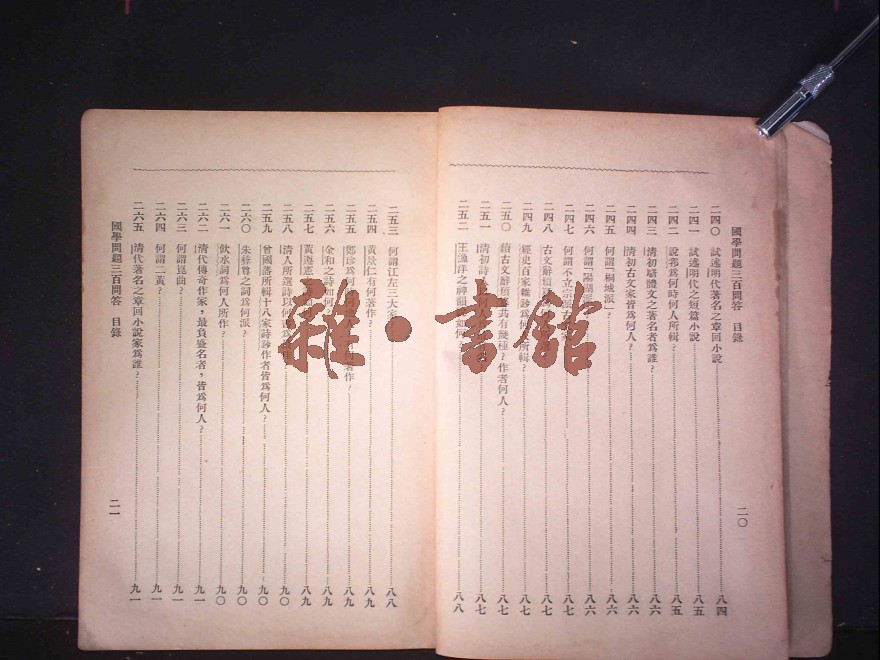 國學問題三百問答 目錄
二〇
二四〇 試述明代著名之章回小說 八四
二四一 試述明代之短篇小說 八五
二四二 說郛爲何時何人所輯? 八五
二四三 清初駢體文之著名者爲誰? 八六
二四四 清初古文家皆爲何人? 八六
二四五 何謂「桐城派」? 八六
二四六 何謂「陽湖 八六
二四七 何謂不立宗 古文 八七
二四八 古文辭 八七
二四九 經史百家雜鈔爲何 所輯? 八七
二五〇 續古文辭 共有幾種?作者何人? 八七
二五一 清初詩 何人 八七
二五二 王漁洋之神韻 如何 八八
二五三 何謂江左三大家 八八
二五四 黃景仁有何著作? 八九
二五五 鄭珍爲何 何著作? 八九
二五六 金和之詩如何 八九
二五七 黃遵憲 八九
二五八 清人所選詩以何 九〇
二五九 曾國藩所輯十八家詩鈔作者皆爲何人? 九〇
二六〇 朱彝尊之詞爲何派? 九〇
二六一 飲水詞爲何人所作? 九〇
二六二 清代傳奇作家,最負盛名者,皆爲何人? 九一
二六三 何謂崑曲? 九一
二六四 何謂二黃? 九一
二六五 清代著名之章回小說家爲誰? 九一
國學問題三百問答 目錄
二一
雜·書館